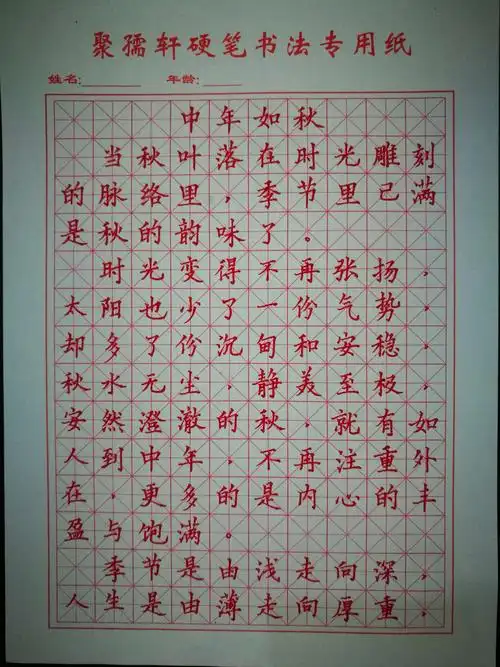 聚孺轩硬笔书法专用纸
姓名:________ 年龄:_____
中年如秋
当秋叶落在时光雕刻
的脉络里，季节里已满
是秋的韵味了。
时光变得不再张扬，
太阳也少了一份气势，
却多了份沉甸和安稳，
秋水无尘，静美至极，
安然澄澈的秋，就有如
人到中年，不再注重外
在，更多的是内心的丰
盈与饱满。
季节是由浅走向深，
人生是由薄走向厚重，